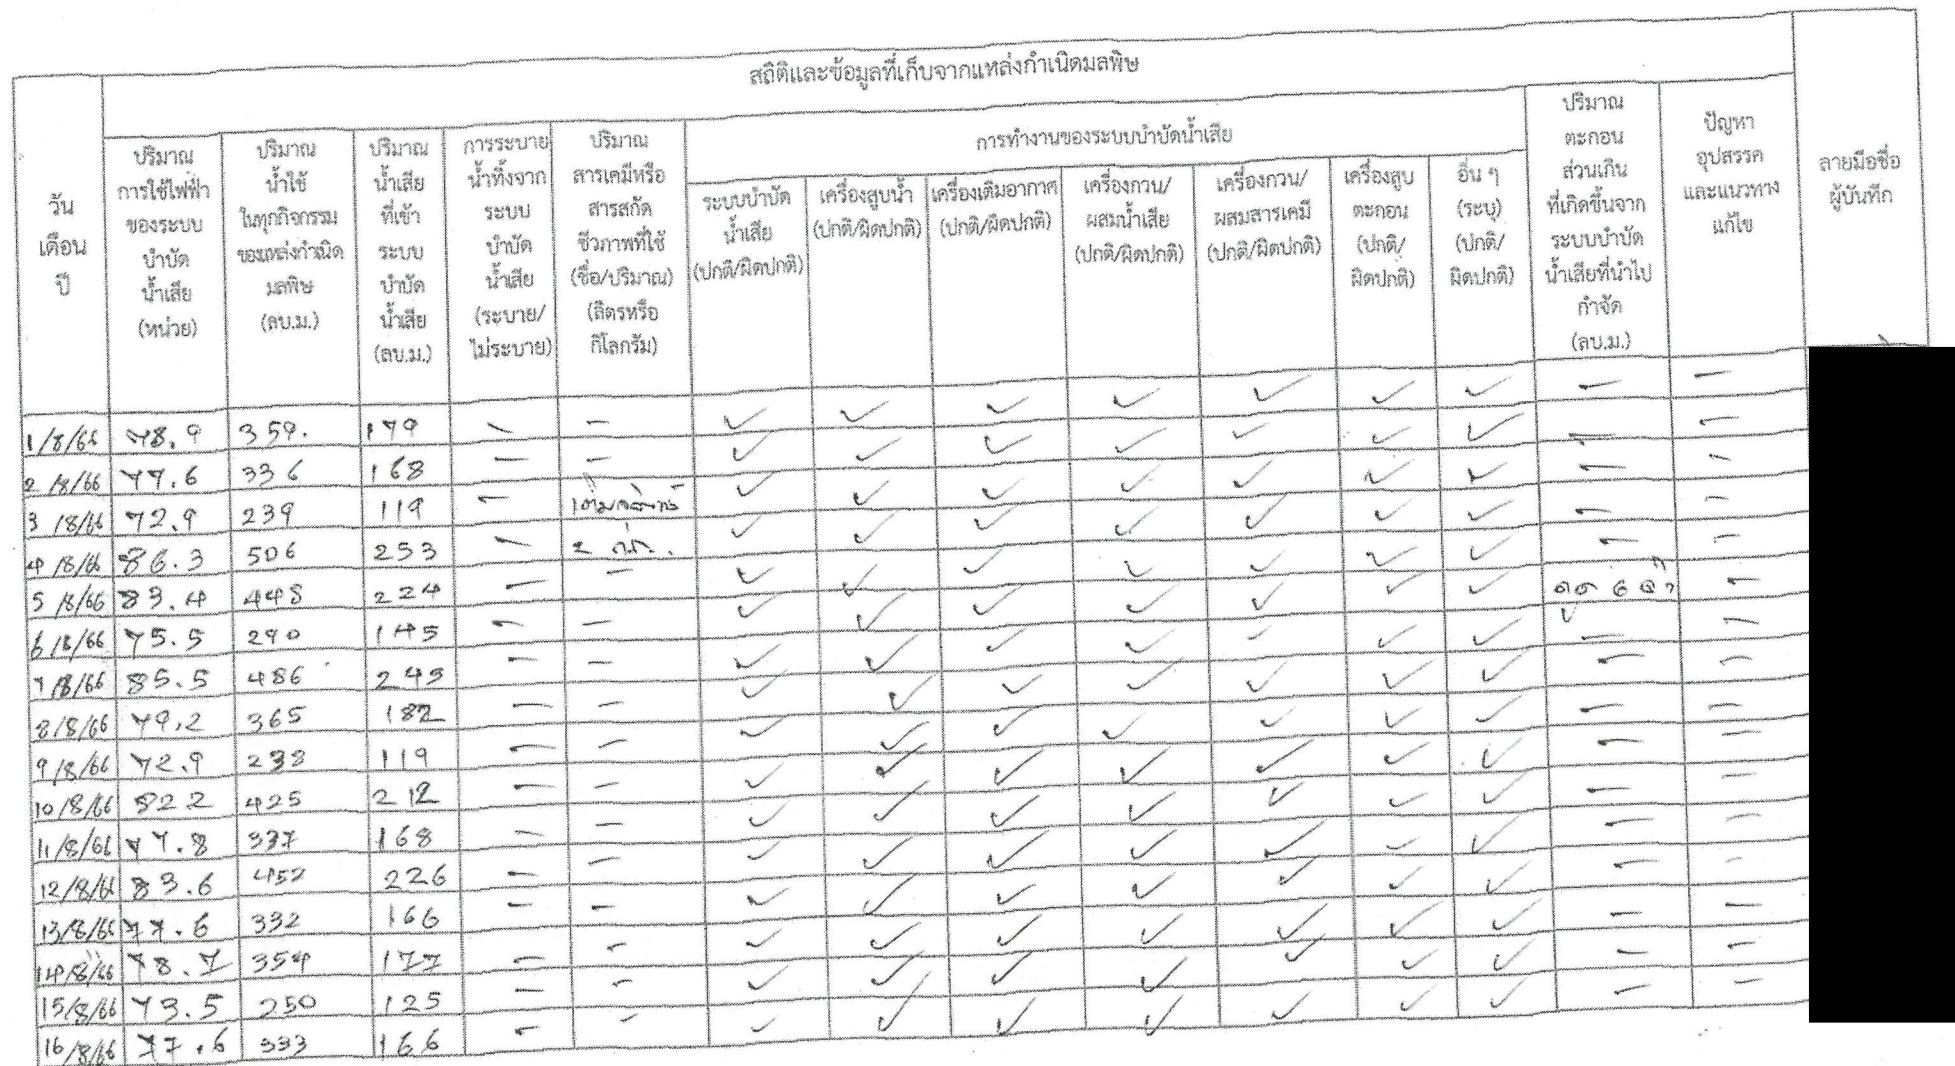 สถิติและข้อมูลที่เก็บจากแหล่งกำเนิดมลพิษ
วัน
เดือน
ปี
ปริมาณ
การใช้ไฟฟ้า
ของระบบ
บำบัด
น้ำเสีย
(หน่วย)
ปริมาณ
น้ำใช้
ในทุกกิจกรรม
ของแหล่งกำเนิด
มลพิษ
(ลบ.ม.)
ปริมาณ
น้ำเสีย
ที่เข้า
ระบบ
บำบัด
น้ำเสีย
(ลบ.ม.)
การระบาย
น้ำทิ้งจาก
ระบบ
บำบัด
น้ำเสีย
(ระบาย/
ไม่ระบาย)
ปริมาณ
สารเคมีหรือ
สารสกัด
ชีวภาพที่ใช้
(ชื่อ/ปริมาณ)
(ลิตรหรือ
กิโลกรัม)
การทำงานของระบบบำบัดน้ำเสีย
ระบบบำบัด
น้ำเสีย
(ปกติ/ผิดปกติ)
เครื่องสูบน้ำ
(ปกติ/ผิดปกติ)
เครื่องเติมอากาศ
(ปกติ/ผิดปกติ)
เครื่องกวน/
ผสมน้ำเสีย
(ปกติ/ผิดปกติ)
เครื่องกวน/
ผสมสารเคมี
(ปกติ/ผิดปกติ)
เครื่องสูบ
ตะกอน
(ปกติ/
ผิดปกติ)
อื่น ๆ
(ระบุ)
(ปกติ/
ผิดปกติ)
ปริมาณ
ตะกอน
ส่วนเกิน
ที่เกิดขึ้นจาก
ระบบบำบัด
น้ำเสียที่นำไป
กำจัด
(ลบ.ม.)
ปัญหา
อุปสรรค
และแนวทาง
แก้ไข
ลายมือชื่อ
ผู้บันทึก
1/8/66 78.9 359. 179 - - ✓ ✓ ✓ ✓ ✓ ✓ ✓ - -
2/8/66 77.6 336 168 - - ✓ ✓ ✓ ✓ ✓ ✓ ✓ - -
3/8/66 72.9 239 119 - ✓ ✓ ✓ ✓ ✓ ✓ ✓ - -
4/8/66 86.3 506 253 - 2 กก. ✓ ✓ ✓ ✓ ✓ ✓ ✓ - -
5/8/66 83.4 448 224 - - ✓ ✓ ✓ ✓ ✓ ✓ ✓ - -
6/8/66 75.5 290 145 - - ✓ ✓ ✓ ✓ ✓ ✓ ✓ -
7/8/66 85.5 486 243 - - ✓ ✓ ✓ ✓ ✓ ✓ ✓ - -
8/8/66 79.2 365 182 - - ✓ ✓ ✓ ✓ ✓ ✓ ✓ - -
9/8/66 72.9 238 119 - - ✓ ✓ ✓ ✓ ✓ ✓ ✓ - -
10/8/66 82.2 425 212 - - ✓ ✓ ✓ ✓ ✓ ✓ ✓ - -
11/8/66 77.8 337 168 - - ✓ ✓ ✓ ✓ ✓ ✓ ✓ - -
12/8/66 83.6 452 226 - - ✓ ✓ ✓ ✓ ✓ ✓ ✓ - -
13/8/66 77.6 332 166 - - ✓ ✓ ✓ ✓ ✓ ✓ ✓ - -
14/8/66 78.7 354 177 - - ✓ ✓ ✓ ✓ ✓ ✓ ✓ - -
15/8/66 73.5 250 125 - - ✓ ✓ ✓ ✓ ✓ ✓ ✓ - -
16/8/66 77.6 333 166 - - ✓ ✓ ✓ ✓ ✓ ✓ ✓ - -